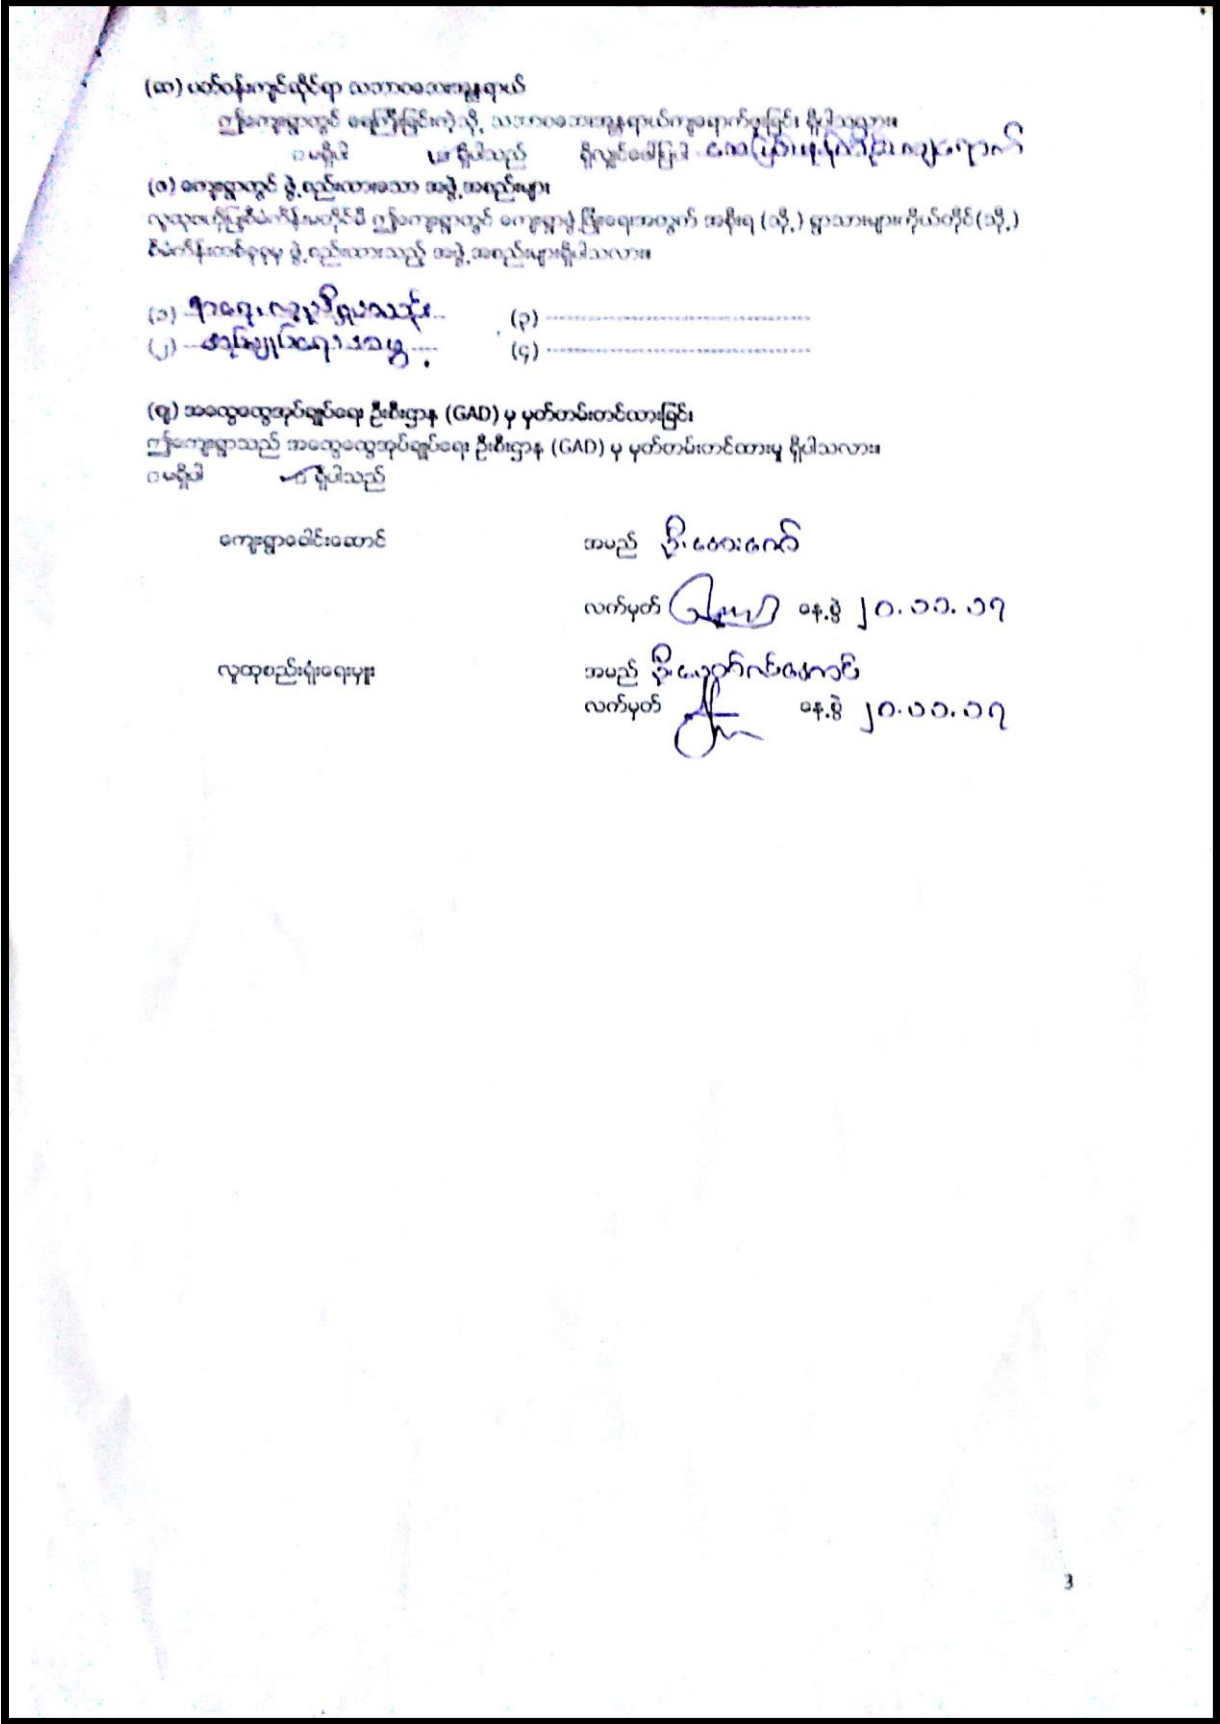 (ဆ) ပတ်ဝန်းကျင်ဆိုင်ရာ သဘာဝဘေးအန္တရာယ်
ဤကျေးရွာတွင် ရေကြီးခြင်းကဲ့သို့ သဘာဝဘေးအန္တရာယ်ကျရောက်ဖူးခြင်း ရှိပါသလား။
□ မရှိပါ □ ရှိပါသည် ရှိလျှင်ဖေါ်ပြပါ ကျရောက်
(ဇ) ကျေးရွာတွင် ဖွဲ့စည်းထားသော အဖွဲ့အစည်းများ
လူထုဗဟိုပြုစီမံကိန်းမတိုင်မီ ဤကျေးရွာတွင် ကျေးရွာဖွံ့ဖြိုးရေးအတွက် အစိုးရ (သို့) ရွာသားများကိုယ်တိုင် (သို့)
စီမံကိန်းတစ်ခုခုမှ ဖွဲ့စည်းထားသည့် အဖွဲ့အစည်းများရှိပါသလား။
(၁) (၃) ----------
(၂) အုပ်ချုပ်ရေး အဖွဲ့ (၄) ----------
(ဈ) အထွေထွေအုပ်ချုပ်ရေး ဦးစီးဌာန (GAD) မှ မှတ်တမ်းတင်ထားခြင်း
ဤကျေးရွာသည် အထွေထွေအုပ်ချုပ်ရေး ဦးစီးဌာန (GAD) မှ မှတ်တမ်းတင်ထားမှု ရှိပါသလား။
□ မရှိပါ □ ရှိပါသည်
ကျေးရွာခေါင်းဆောင် အမည် ဦး
လက်မှတ် နေ့စွဲ ၂၀.၁၁.၁၇
လူထုစည်းရုံးရေးမှူး အမည် ဦး
လက်မှတ် နေ့စွဲ ၂၀.၁၁.၁၇
3